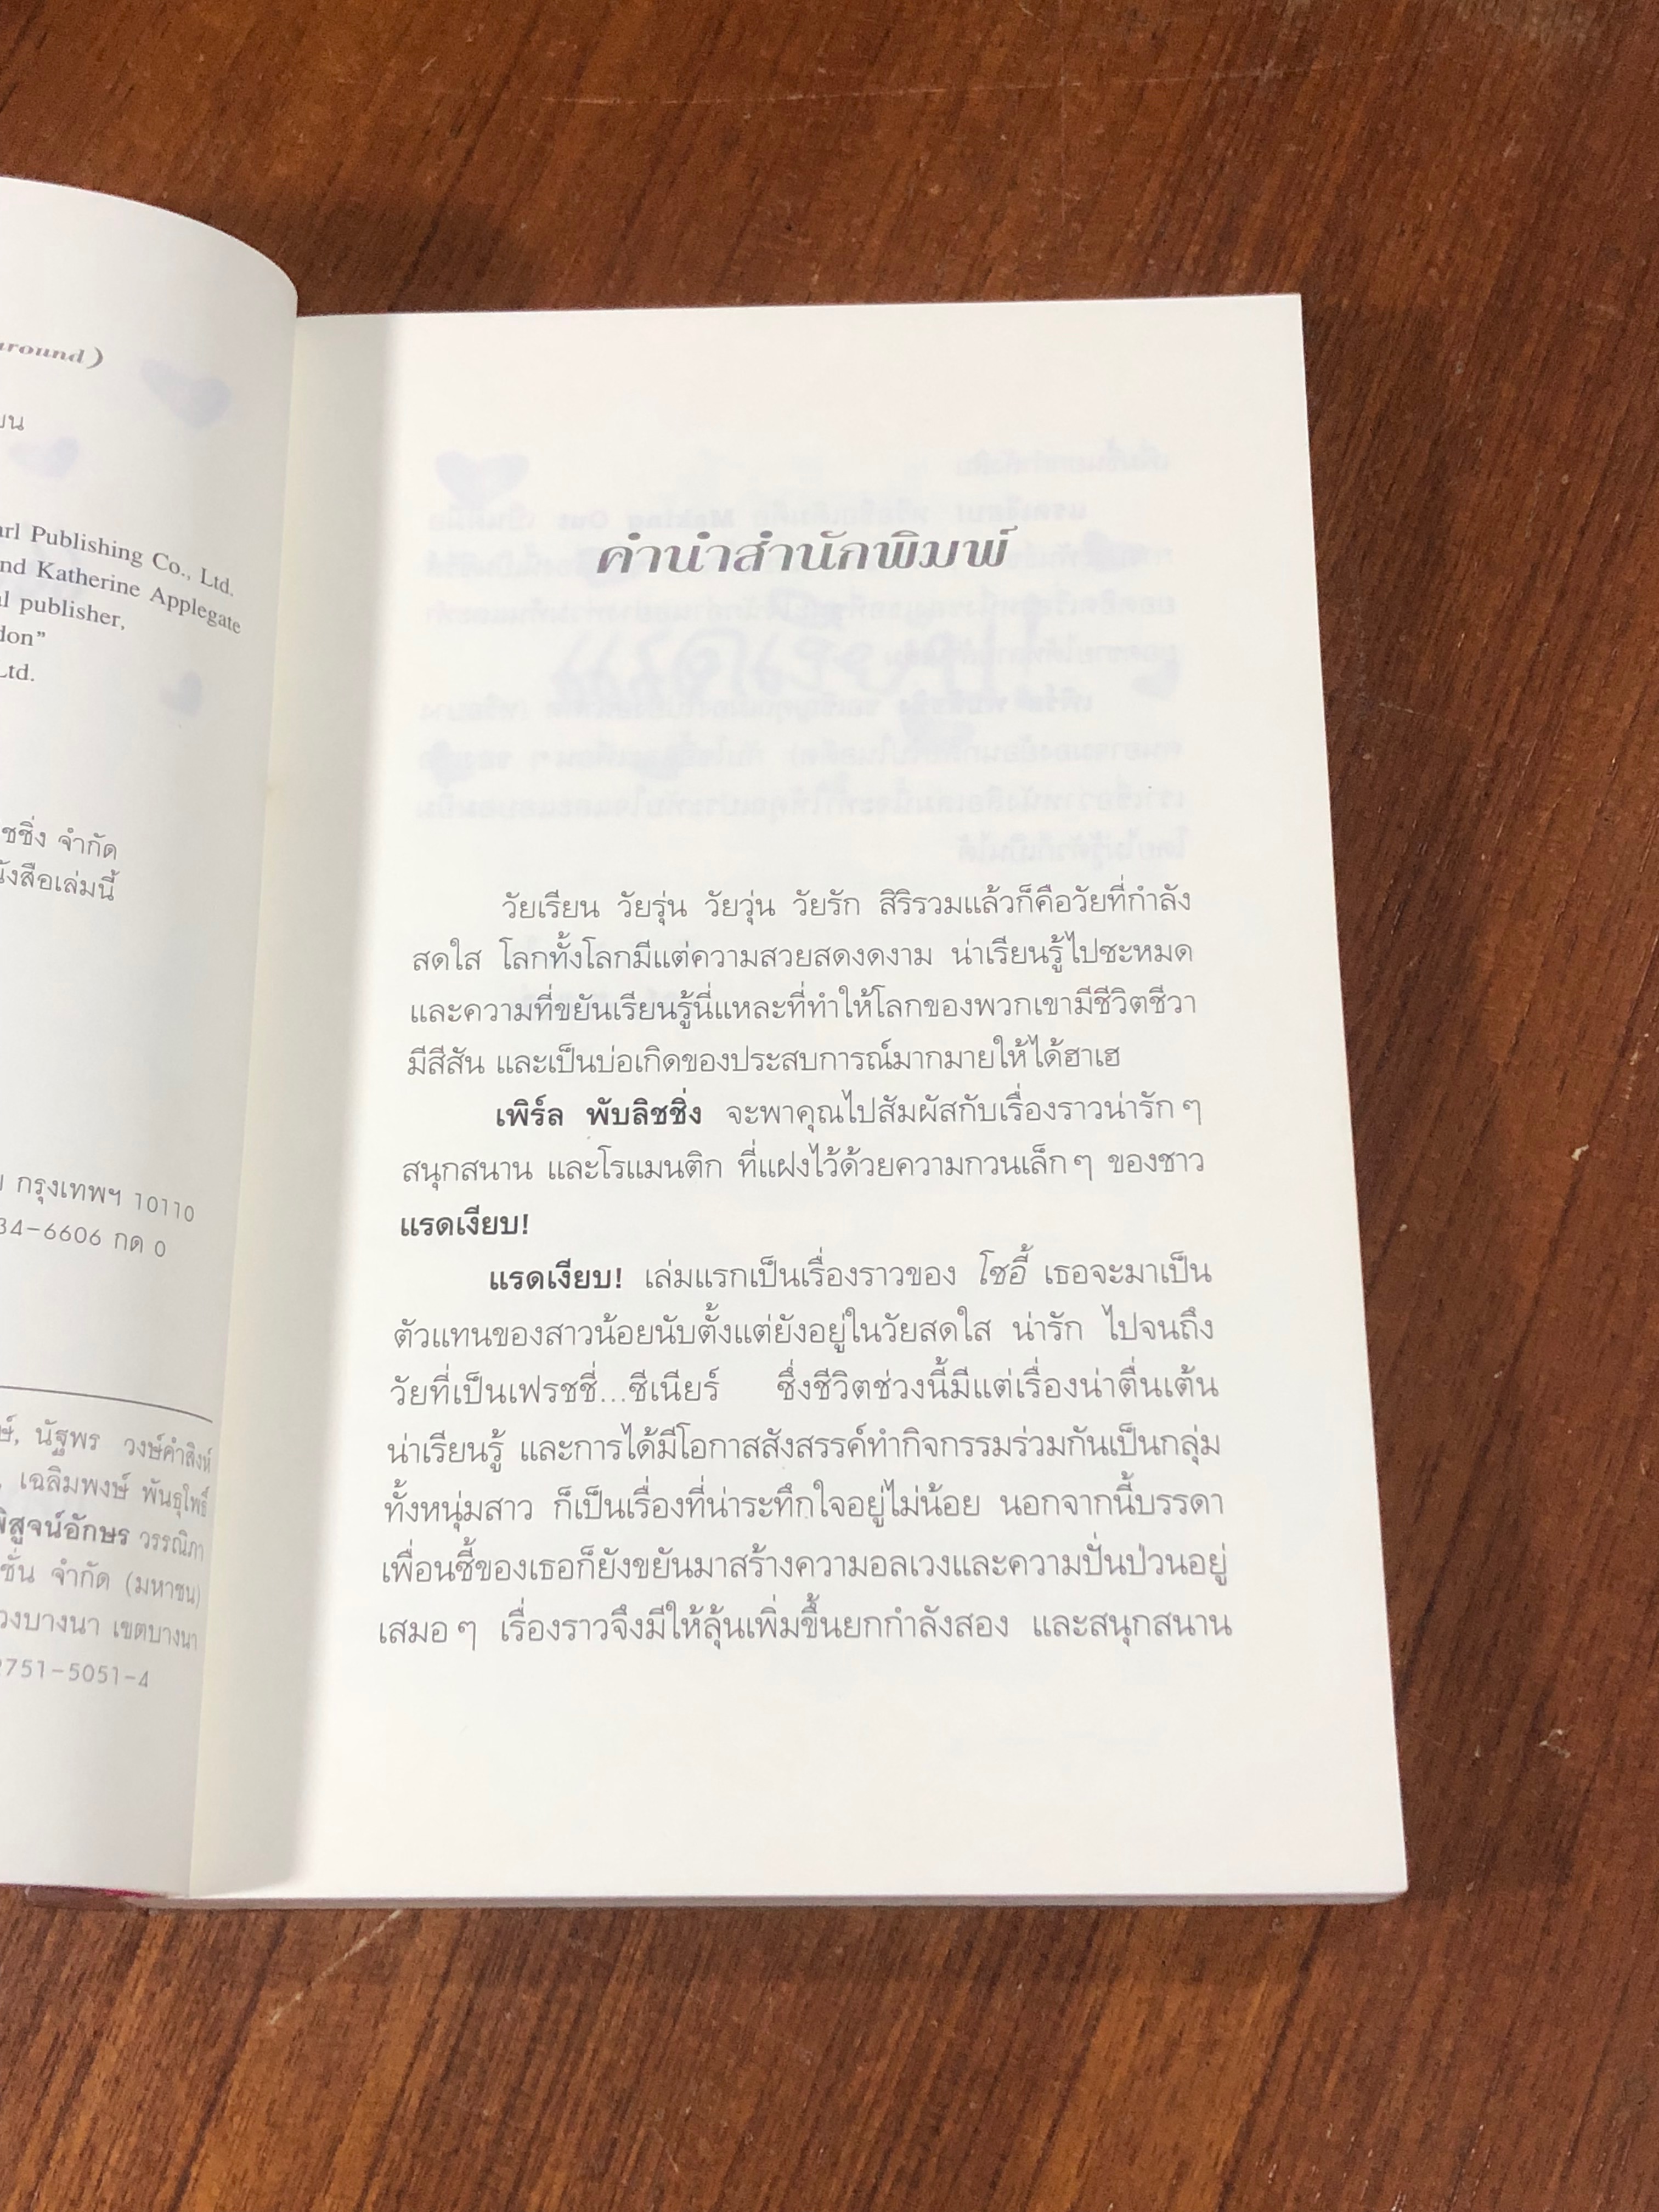 around)
arl Publishing Co., Ltd.
and Katherine Applegate
publisher,
Ltd.
จำกัด
หนังสือเล่มนี้
กรุงเทพฯ 10110
34-6606 กด 0
นัฐพร วงษ์คำสิงห์
เฉลิมพงษ์ พันธุโพธิ์
พิสูจน์อักษร วรรณิภา
จำกัด (มหาชน)
เขตบางนา
2751-5051-4
คำนำสำนักพิมพ์
วัยเรียน วัยรุ่น วัยวุ่น วัยรัก สิริรวมแล้วก็คือวัยที่กำลัง
สดใส โลกทั้งโลกมีแต่ความสวยสดงดงาม น่าเรียนรู้ไปซะหมด
และความที่ขยันเรียนรู้นี่แหละที่ทำให้โลกของพวกเขามีชีวิตชีวา
มีสีสัน และเป็นบ่อเกิดของประสบการณ์มากมายให้ได้ฮาเฮ
เพิร์ล พับลิชชิ่ง จะพาคุณไปสัมผัสกับเรื่องราวน่ารักๆ
สนุกสนาน และโรแมนติก ที่แฝงไว้ด้วยความกวนเล็กๆ ของชาว
แรดเงียบ!
แรดเงียบ! เล่มแรกเป็นเรื่องราวของ โซอี้ เธอจะมาเป็น
ตัวแทนของสาวน้อยนับตั้งแต่ยังอยู่ในวัยสดใส น่ารัก ไปจนถึง
วัยที่เป็นเฟรชชี่...ซีเนียร์ ซึ่งชีวิตช่วงนี้มีแต่เรื่องน่าตื่นเต้น
น่าเรียนรู้ และการได้มีโอกาสสังสรรค์ทำกิจกรรมร่วมกันเป็นกลุ่ม
ทั้งหนุ่มสาว ก็เป็นเรื่องที่น่าระทึกใจอยู่ไม่น้อย นอกจากนี้บรรดา
เพื่อนซี้ของเธอก็ยังขยันมาสร้างความอลเวงและความปั่นป่วนอยู่
เสมอๆ เรื่องราวจึงมีให้ลุ้นเพิ่มขึ้นยกกำลังสอง และสนุกสนาน